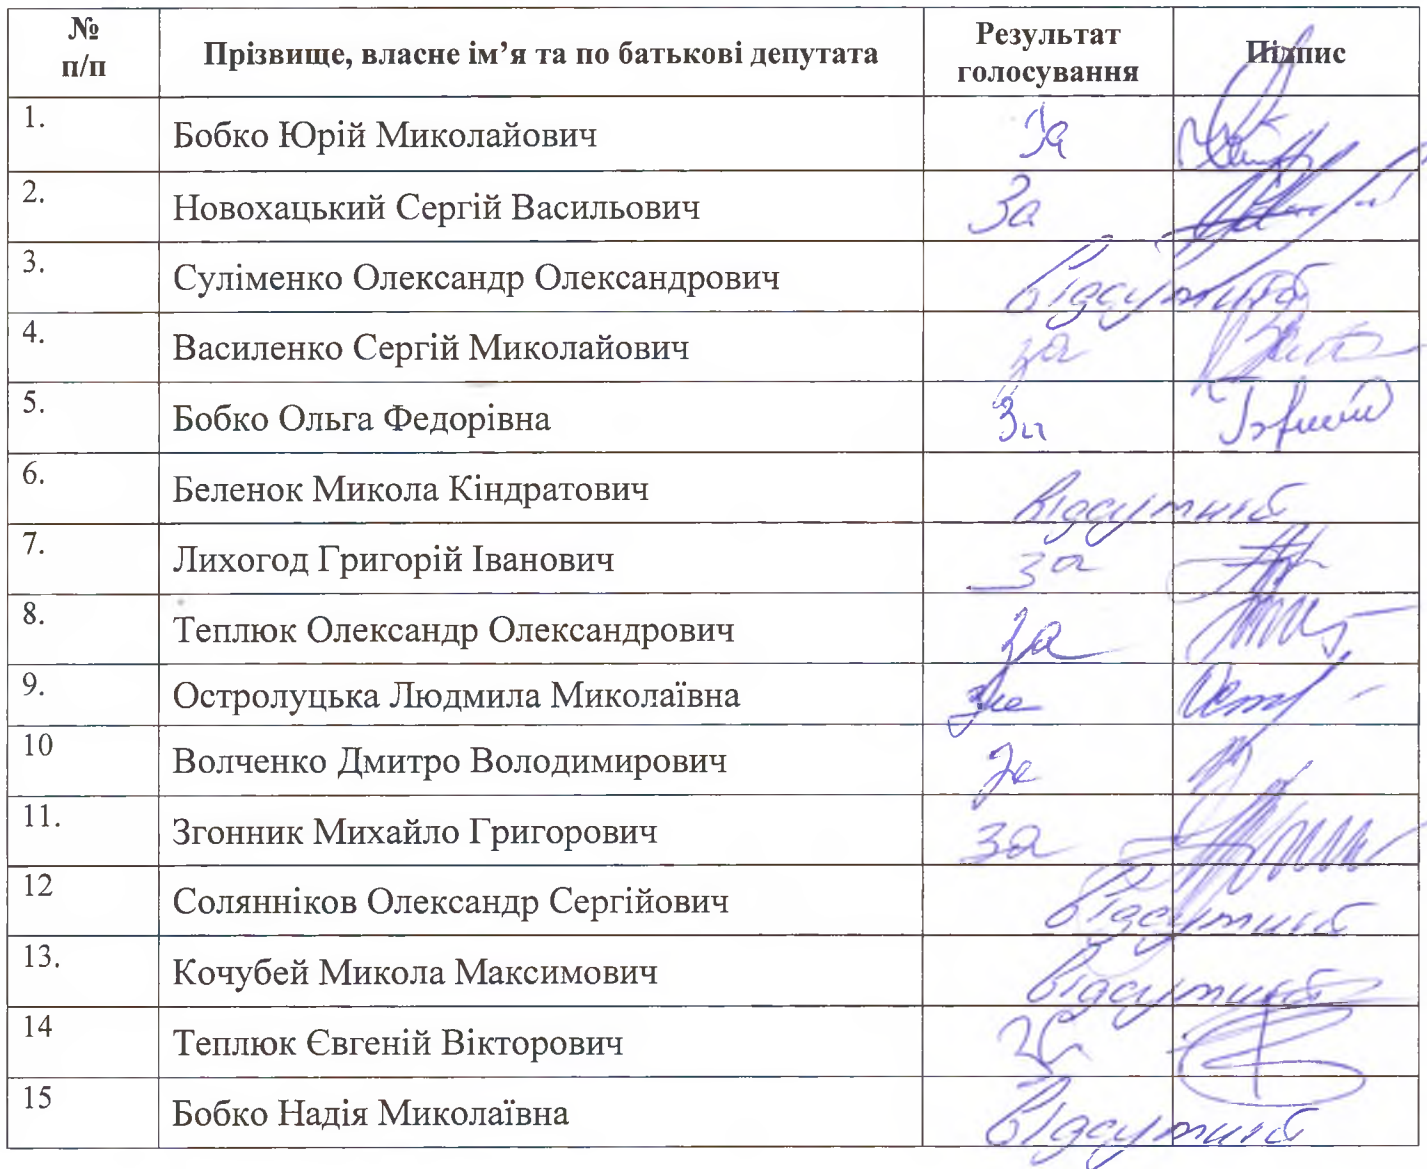 № п/п Прізвище, власне ім’я та по батькові депутата Результат голосування Підпис
1. Бобко Юрій Миколайович За
2. Новохацький Сергій Васильович За
3. Суліменко Олександр Олександрович відсутній
4. Василенко Сергій Миколайович за
5. Бобко Ольга Федорівна За
6. Беленок Микола Кіндратович відсутній
7. Лихогод Григорій Іванович за
8. Теплюк Олександр Олександрович за
9. Остролуцька Людмила Миколаївна за
10 Волченко Дмитро Володимирович За
11. Згонник Михайло Григорович за
12 Солянніков Олександр Сергійович відсутній
13. Кочубей Микола Максимович відсутній
14 Теплюк Євгеній Вікторович за
15 Бобко Надія Миколаївна відсутній